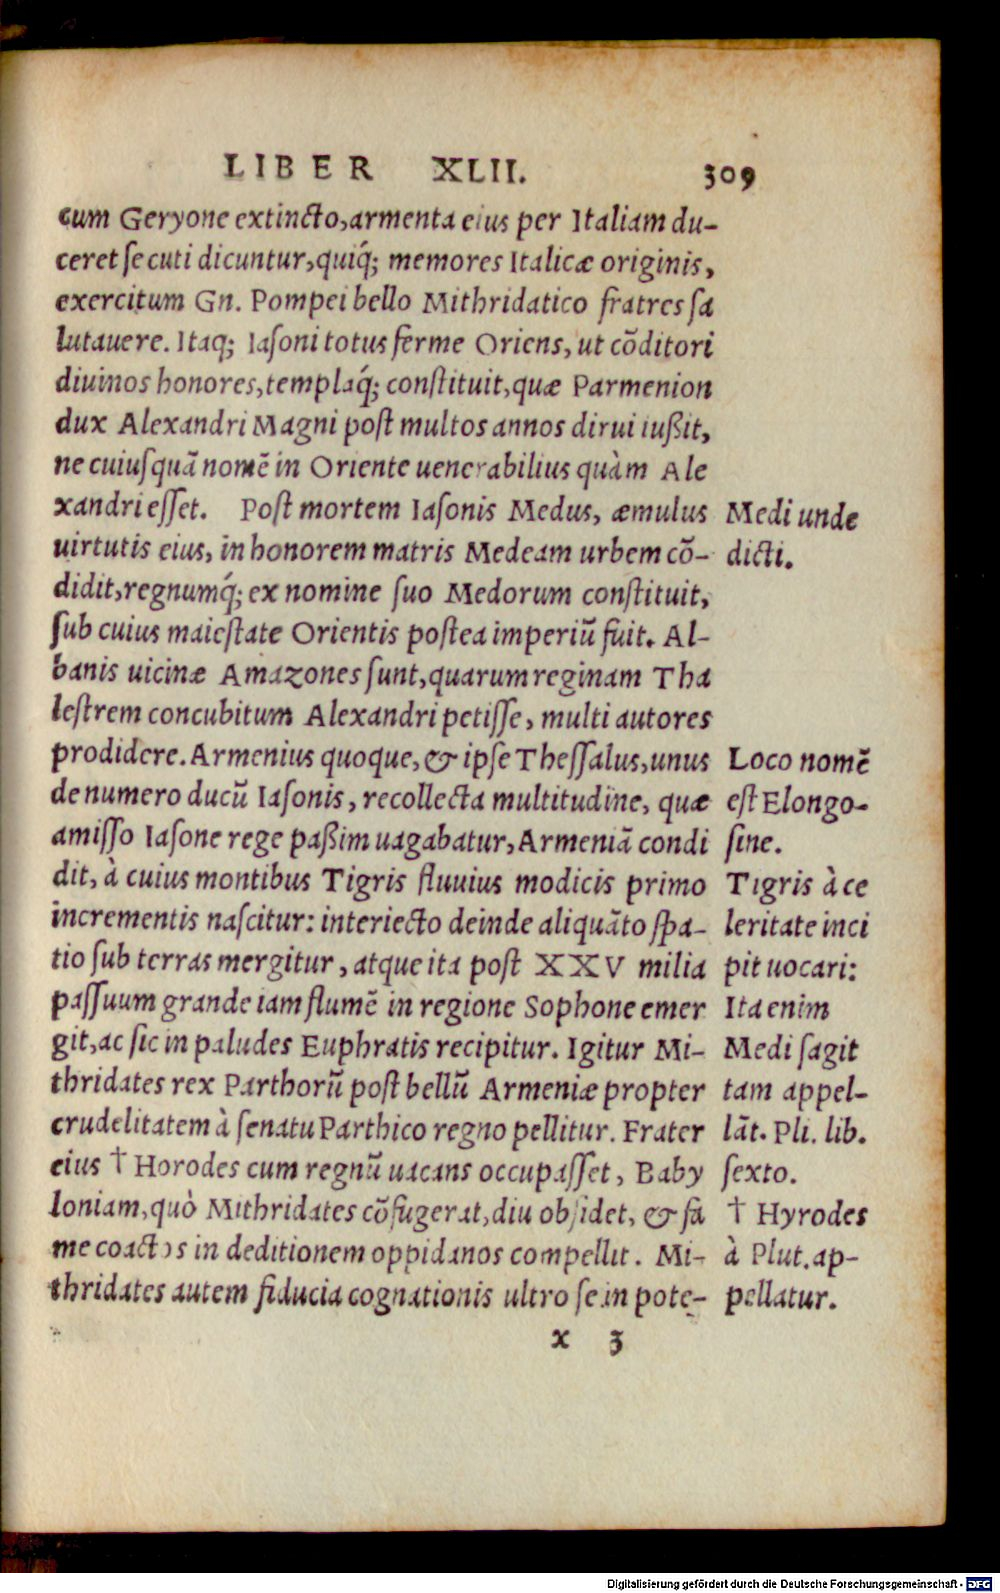 LIBER XLII. 309
cum Geryone extincto, armenta eius per Italiam du-
ceret secuti dicuntur, quiq́; memores Italicæ originis,
exercitum Gn. Pompei bello Mithridatico fratres sa
lutauere. Itaq; Iasoni totus ferme Oriens, ut cōditori
diuinos honores, templaq́; constituit, quæ Parmenion
dux Alexandri Magni post multos annos dirui iußit,
ne cuiusquā nomē in Oriente uenerabilius quàm Ale
xandri esset. Post mortem Iasonis Medus, æmulus
uirtutis eius, in honorem matris Medeam urbem cō-
didit, regnumq́; ex nomine suo Medorum constituit,
sub cuius maiestate Orientis postea imperiū fuit. Al-
banis uicinæ Amazones sunt, quarum reginam Tha
lestrem concubitum Alexandri petisse, multi autores
prodidere. Armenius quoque, & ipse Thessalus, unus
de numero ducū Iasonis, recollecta multitudine, quæ
amisso Iasone rege paßim uagabatur, Armeniā condi
dit, à cuius montibus Tigris fluuius modicis primo
incrementis nascitur: interiecto deinde aliquāto spa-
tio sub terras mergitur, atque ita post XXV milia
passuum grande iam flumē in regione Sophone emer
git, ac sic in paludes Euphratis recipitur. Igitur Mi-
thridates rex Parthorū post bellū Armeniæ propter
crudelitatem à senatu Parthico regno pellitur. Frater
eius † Horodes cum regnū uacans occupasset, Baby
loniam, quò Mithridates cōfugerat, diu obsidet, & fa
me coactos in deditionem oppidanos compellit. Mi-
thridates autem fiducia cognationis ultro se in pote-
x 3
Medi unde
dicti.
Loco nomē
est Elongo-
sine.
Tigris à ce
leritate inci
pit uocari:
Ita enim
Medi sagit
tam appel-
lāt. Pli. lib.
sexto.
† Hyrodes
à Plut. ap-
pellatur.
Digitalisierung gefördert durch die Deutsche Forschungsgemeinschaft - DFG